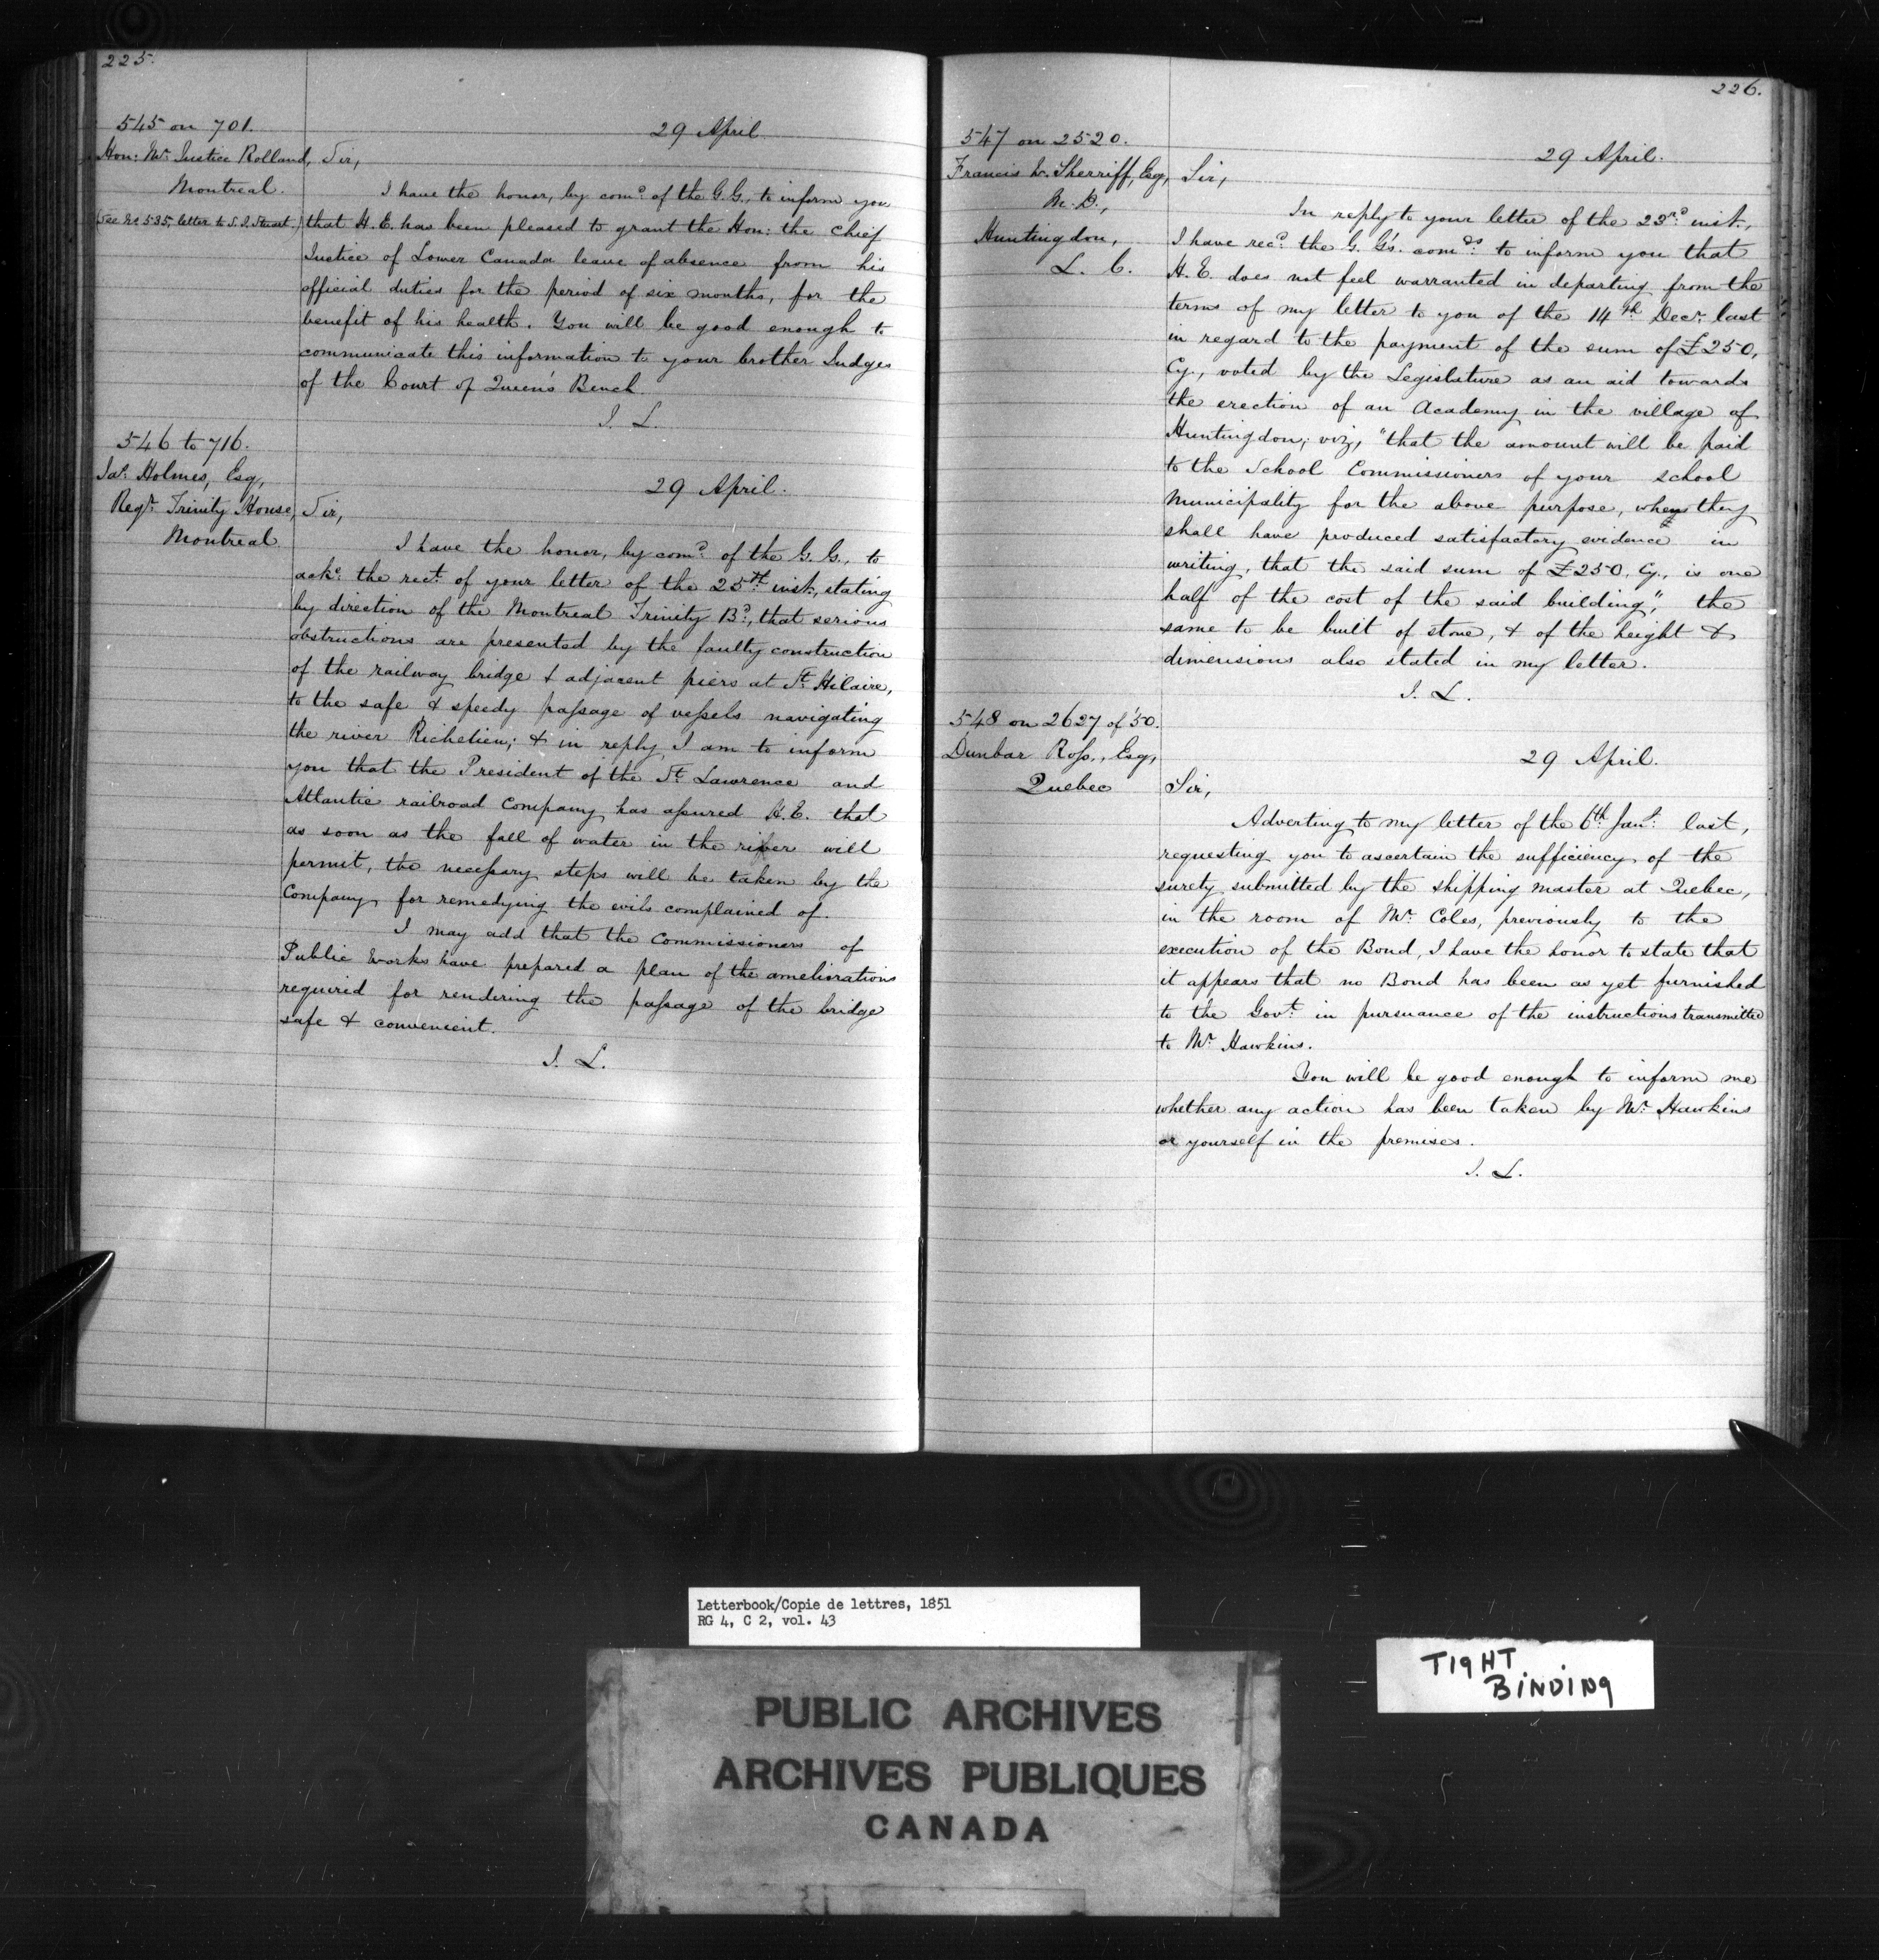 225.
545 on 701.
29 April
Hon: Mr. Justice Rolland,
Montreal.
(See No. 535, letter to S. J. Stuart.)
Sir,
I have the honor, by comd. of the G. G., to inform you
that H. E. has been pleased to grant the Hon: the Chief
Justice of Lower Canada leave of absence from his
official duties for the period of six months, for the
benefit of his health. You will be good enough to
communicate this information to your brother Judges
of the Court of Queen's Bench
J. L.
546 to 716.
29 April.
Jas. Holmes, Esq,
Regr. Trinity House,
Montreal
Sir,
I have the honor, by comd. of the G. G., to
acke. the rect. of your letter of the 25th inst., stating
by direction of the Montreal Trinity Bd., that serious
obstructions are presented by the faulty construction
of the railway bridge & adjacent piers at St. Hilaire,
to the safe & speedy passage of vessels navigating
the river Richelieu; & in reply, I am to inform
you that the President of the St. Lawrence and
Atlantic railroad Company has assured H. E. that
as soon as the fall of water in the river will
permit, the necessary steps will be taken by the
Company for remedying the evils complained of.
I may add that the Commissioners of
Public Works have prepared a plan of the ameliorations
required for rendering the passage of the bridge
safe & convenient.
J. L.
226.
547 on 2520.
29 April.
Francis W. Sherriff, Esq,
M. D.,
Huntingdon,
L. C.
Sir,
In reply to your letter of the 23rd. inst.,
I have recd. the G. G's. comds. to inform you that
H. E. does not feel warranted in departing from the
terms of my letter to you of the 14th. Decr. last
in regard to the payment of the sum of £250,
Cy., voted by the Legislature as an aid towards
the erection of an Academy in the village of
Huntingdon; viz, "that the amount will be paid
to the School Commissioners of your school
Municipality for the above purpose, when they
shall have produced satisfactory evidence in
writing, that the said sum of £250, Cy., is one
half of the cost of the said building," the
same to be built of stone, & of the height &
dimensions also stated in my letter.
J. L.
548 on 2627 of '50.
29 April.
Dunbar Ross., Esq,
Quebec
Sir,
Adverting to my letter of the 6th. Jany. last,
requesting you to ascertain the sufficiency of the
surety submitted by the shipping master at Quebec,
in the room of Mr. Coles, previously to the
execution of the Bond, I have the honor to state that
it appears that no Bond has been as yet furnished
to the Govt. in pursuance of the instructions transmitted
to Mr. Hawkins.
You will be good enough to inform me
whether any action has been taken by Mr. Hawkins
or yourself in the premises.
J. L.
Letterbook/Copie de lettres, 1851
RG 4, C 2, vol. 43
TIGHT
BINDING
PUBLIC ARCHIVES
ARCHIVES PUBLIQUES
CANADA